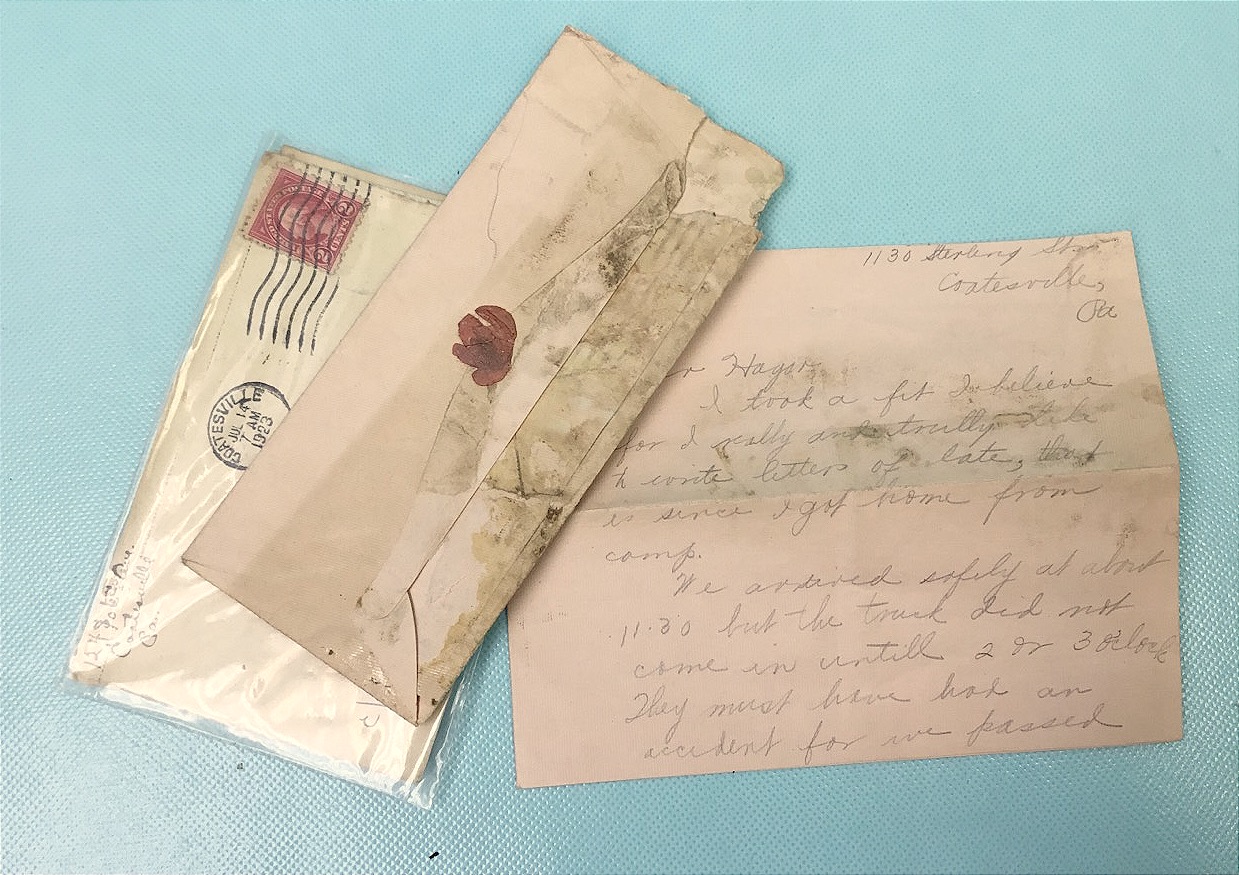 COATESVILLE
JUL 14
7 AM
1923
Coatesville
Pa.
1130 Sterling St.
Coatesville,
Pa
r Hagar,
I took a fit I believe
for I really and trully like
write letters of late, that
is since I got home from
camp.
We arrived safely at about
11.30 but the truck did not
come in untill 2 or 3 oclock
They must have had an
accident for we passed